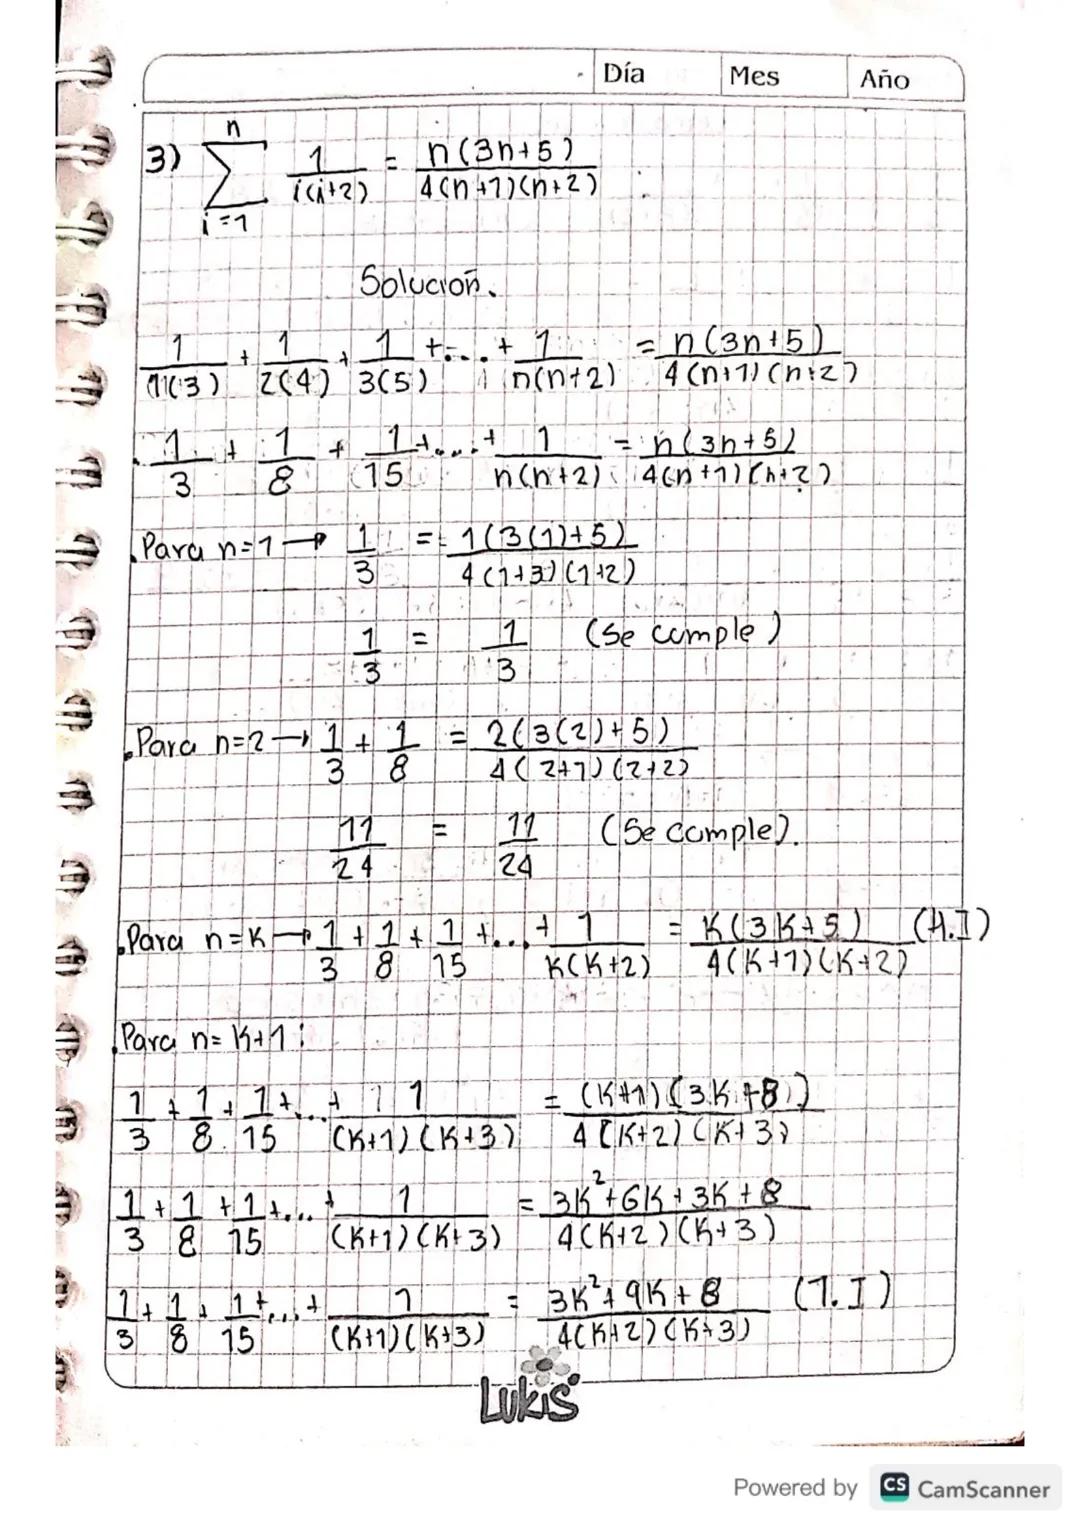 Día Mes Año
3) n∑i=1 1/(i(i+2)) = n(3n+5)/(4(n+1)(n+2))
Solución.
1/(1(3)) + 1/(2(4)) + 1/(3(5)) +...+ 1/(n(n+2)) = n(3n+5)/(4(n+1)(n+2))
1/3 + 1/8 + 1/15 +...+ 1/(n(n+2)) = n(3n+5)/(4(n+1)(n+2))
.Para n=1 → 1/3 = 1(3(1)+5)/(4(1+3)(1+2))
1/3 = 1/3 (Se cumple)
.Para n=2 → 1/3 + 1/8 = 2(3(2)+5)/(4(2+1)(2+2))
11/24 = 11/24 (Se cumple).
.Para n=K → 1/3 + 1/8 + 1/15 +...+ 1/(K(K+2)) = K(3K+5)/(4(K+1)(K+2)) (H.I)
.Para n=K+1:
1/3 + 1/8 + 1/15 +...+ 1/((K+1)(K+3)) = (K+1)(3K+8)/(4(K+2)(K+3))
1/3 + 1/8 + 1/15 +...+ 1/((K+1)(K+3)) = (3K²+6K+3K+8)/(4(K+2)(K+3))
1/3 + 1/8 + 1/15 +...+ 1/((K+1)(K+3)) = (3K²+9K+8)/(4(K+2)(K+3)) (T.I)
Lukis
Powered by CS CamScanner